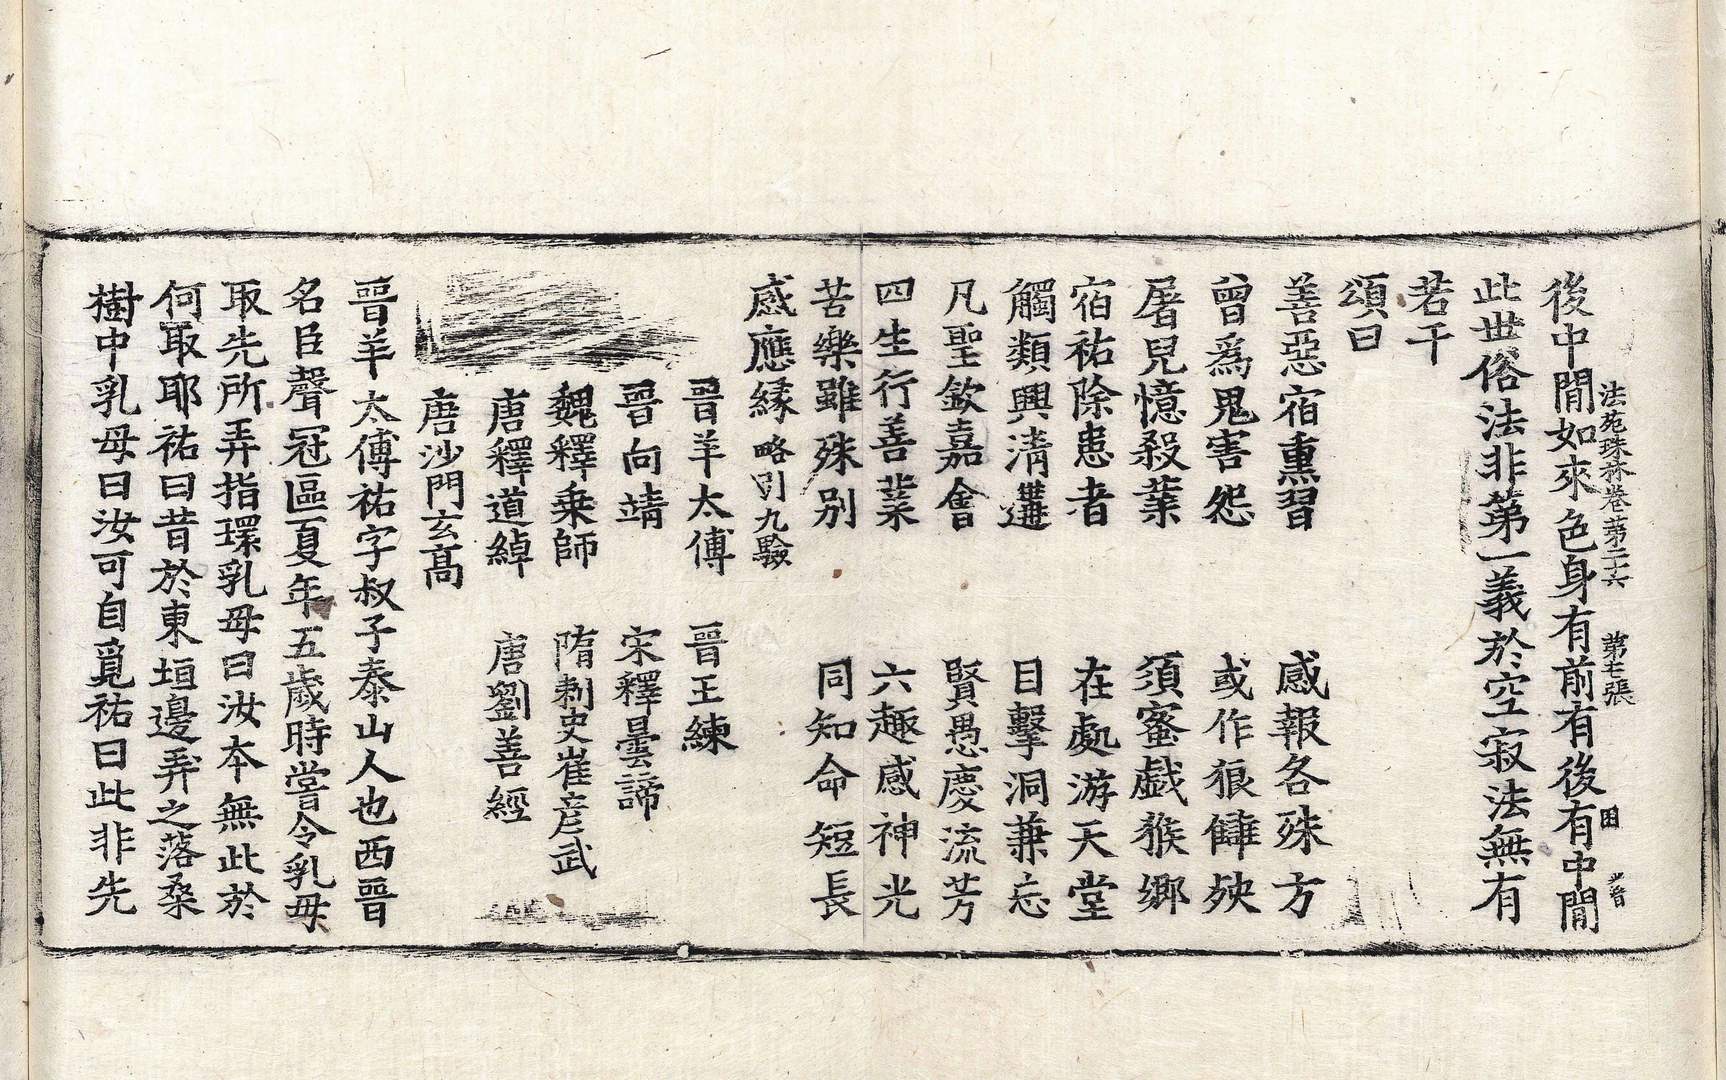 法苑珠林卷第二十六 第七張 田 㫺
後中閒如來色身有前有後有中閒
此世俗法非第一義於空寂法無有
若干
頌曰
善惡宿熏習 感報各殊方
曾爲鬼害怨 或作狼讎殃
屠兒憶殺業 須蜜戱猴鄉
宿祐除患者 在處游天堂
觸類興清遘 目擊洞兼忘
凡聖欽嘉會 賢愚慶流芳
四生行善業 六趣感神光
苦樂雖殊別 同知命短長
感應緣略引九驗
晉羊太傅 晉王練
晉向靖 宋釋曇諦
魏釋乗師 隋刺史崔彦武
唐釋道綽 唐劉善經
唐沙門玄高
晉羊太傅祐字叔子泰山人也西晉
名臣聲冠區夏年五歲時嘗令乳母
取先所弄指環乳母曰汝本無此於
何取耶祐曰昔於東垣邊弄之落桑
樹中乳母曰汝可自覓祐曰此非先